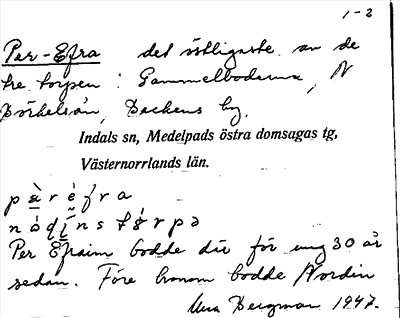 1-2
Per-Efra det östligaste av de
tre torpen i Gammelbodarna, N
Börkelsån, Backens by.
Indals sn, Medelpads östra domsagas tg,
Västernorrlands län.
pæ̀réfra
Per Efraim bodde där för ung 30 år
sedan. Före honom bodde Nordin
Bergman 1947.